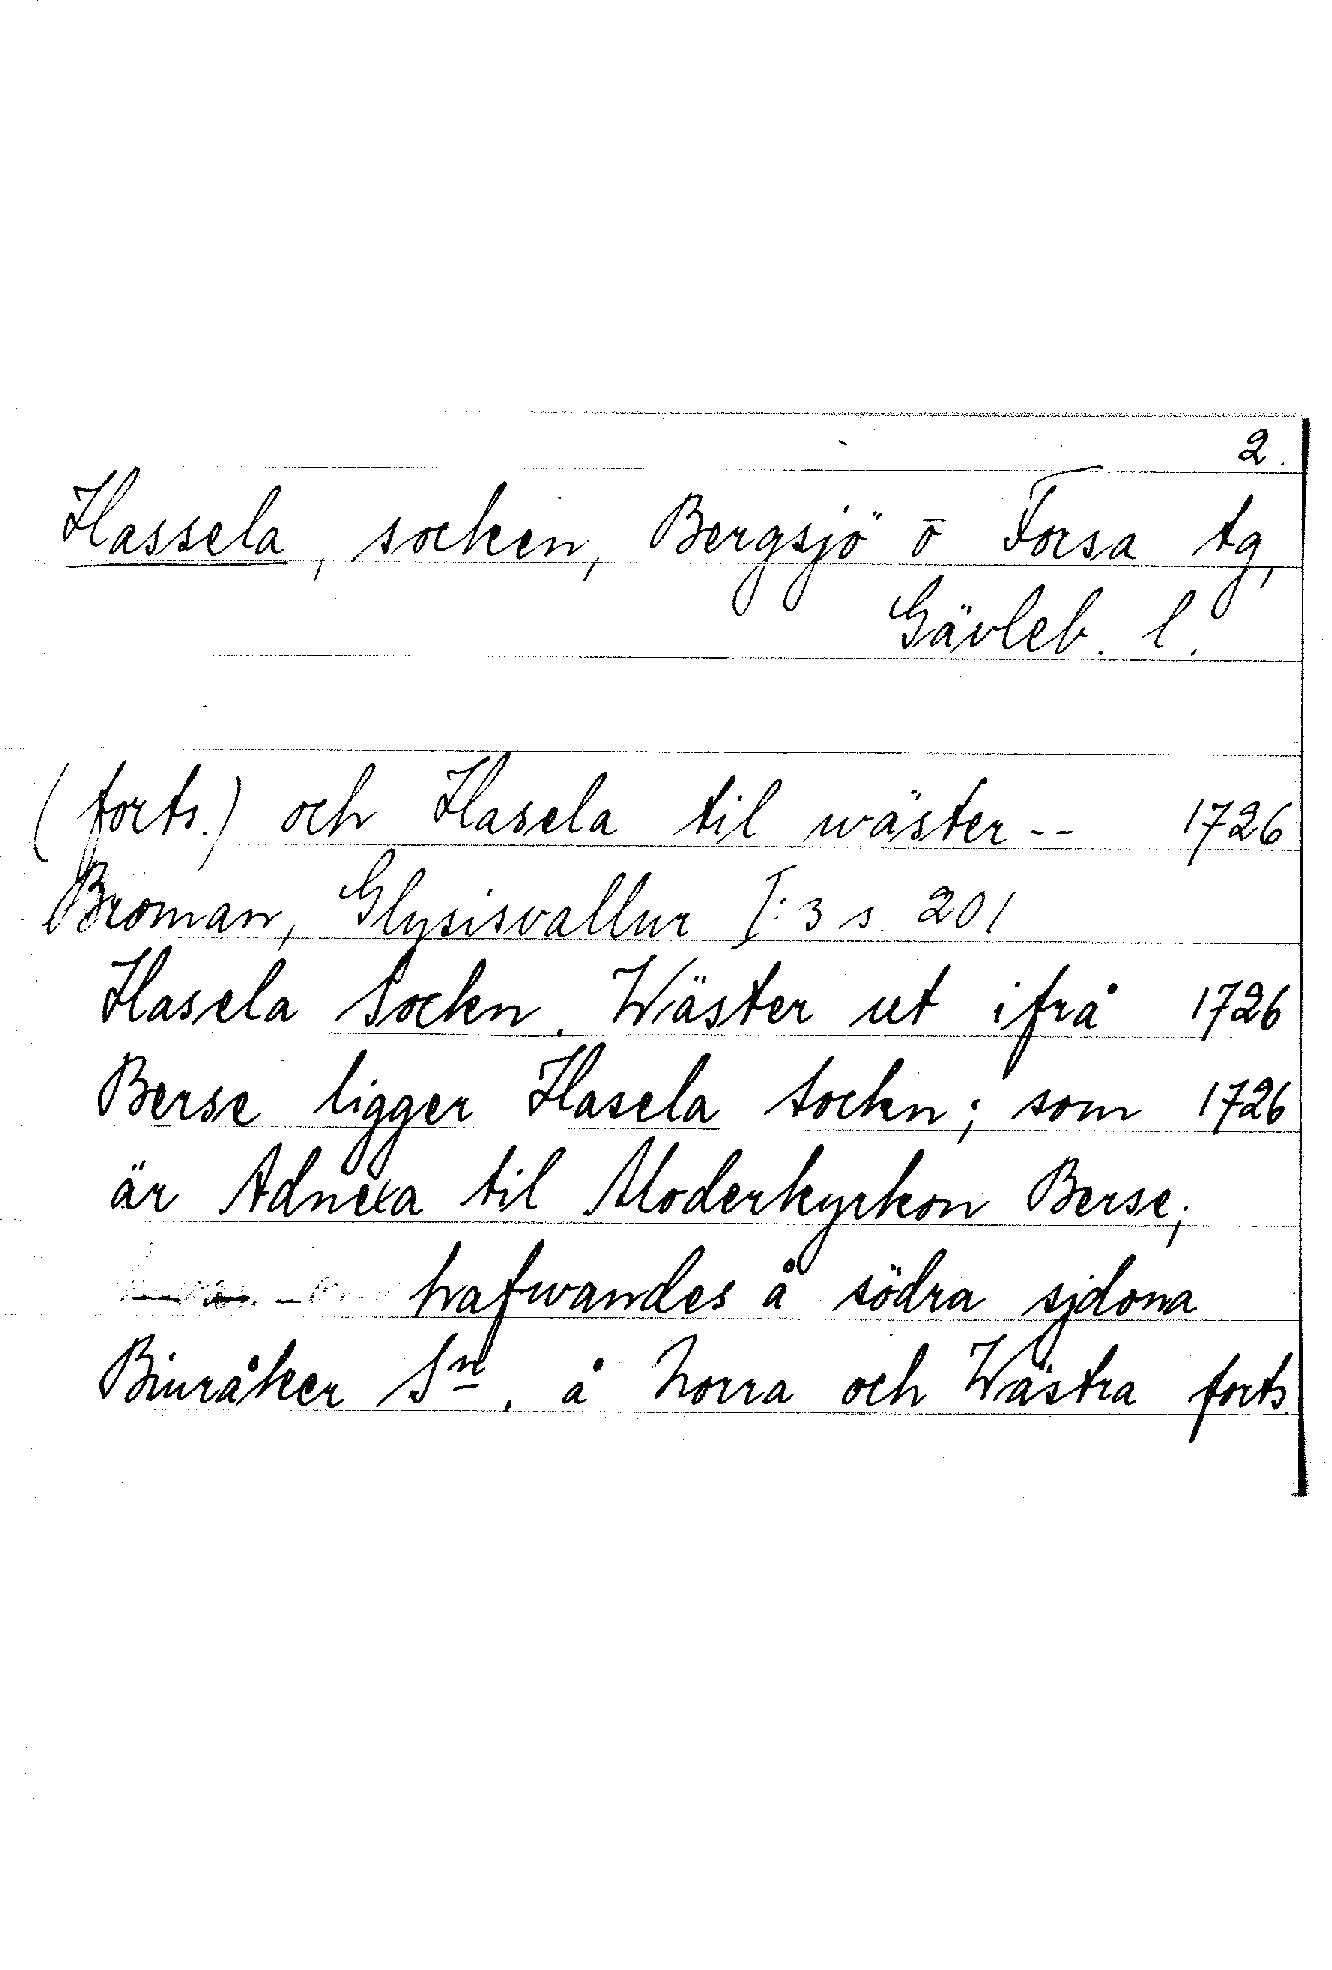 2.
Hassela, socken, Bergsjö o Forsa tg,
Gävleb. l.
(forts.) och Hasela til wäster -- 1726
Broman, Glysisvallur I:3 s. 201
Hasela Sockn. Wäster ut ifrå 1726
Berse ligger Hasela Sockn; som 1726
är Adnexa til Moderkyrkon Berse;
hafwandes å södra sjdona
Biuråker Sn. å Norra och Wästra forts.